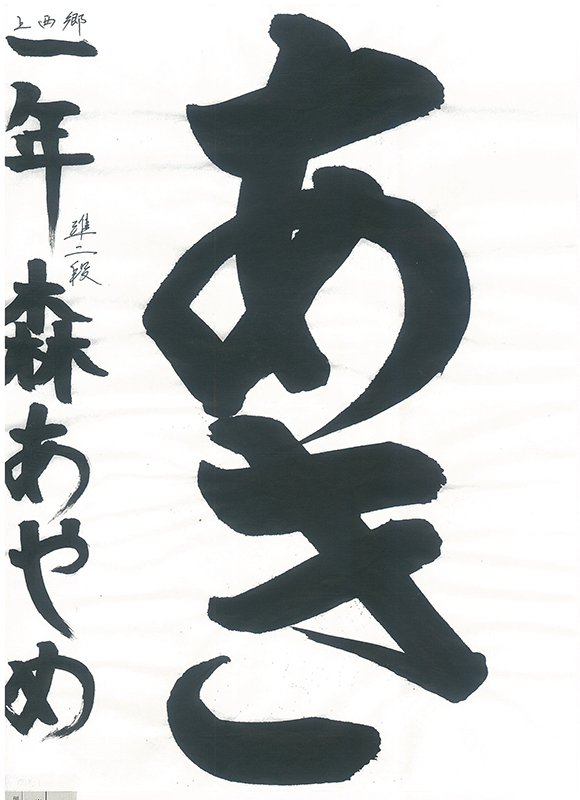 あき
上西郷
一年 森あやめ
準二段